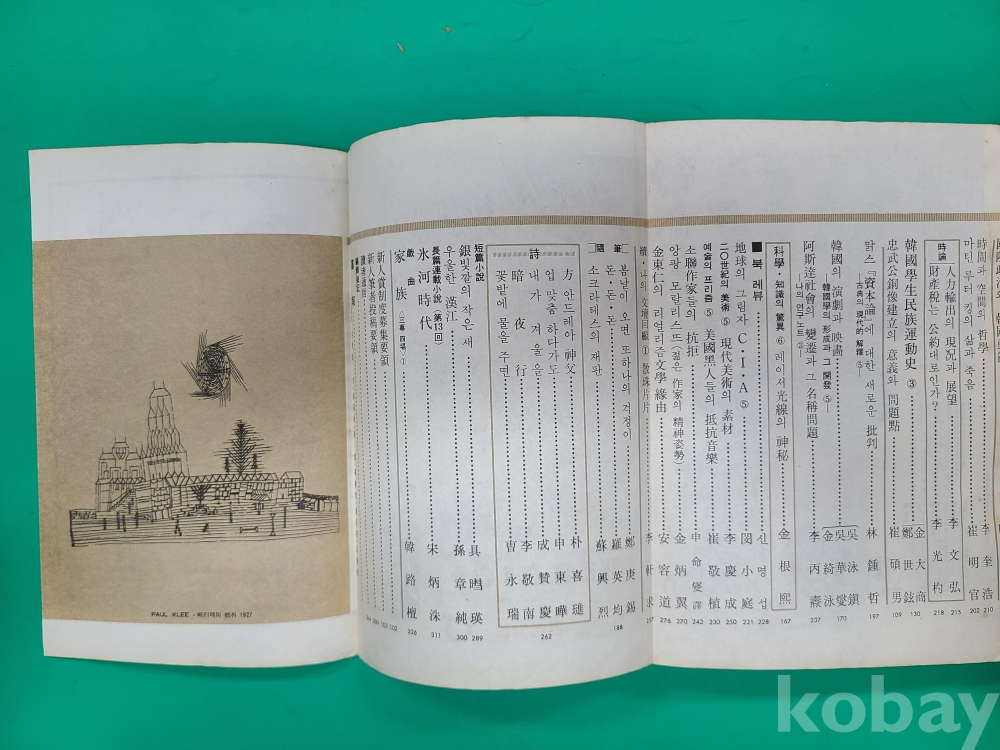 時間과 空間의 哲學 李奎浩 210
마틴 루터 킹의 삶과 죽음 崔明官 202
時論
人力輸出의 現況과 展望 李文弘 215
財産稅는 公約대로인가? 李光杓 218
韓國學生民族運動史 ③ 金大商 鄭世鉉 130
忠武公銅像建立의 意義와 問題點 崔碩男 109
맑스『資本論』에 대한 새로운 批判 林鍾哲 197
—古典의 現代的 解釋 ⑤—
韓國의 演劇과 映畵 吳泳鎭 吳華燮 金綺泳 170
韓國學의 形成과 그 開發 ⑤—
阿斯達社會의 變遷과 그 名稱問題 李丙燾 237
—나의 연구노트 ②—
科學·知識의 驚異 ⑥ 레이서光線의 神秘 金根熙 167
■북 레뷰 신명섭 228
地球의 그림자 C·I·A ⑤ 閔小庭 221
二○世紀의 美術 ⑤ 現代美術의 素材 李慶成 250
예술의 프리즘 ⑤ 美國黑人들의 抵抗音樂 崔敬植 230
소련作家들의 抗拒 申命燮譯 242
앙팡 모랄리스뜨(젊은 作家의 精神姿勢) 金炳翼 270
金東仁의 리얼리즘文學 緣由 安容道 276
續·나의 文壇回顧 ① 散珠片片 李軒求 257
隨筆
봄날이 오면 또하나의 걱정이 鄭庚錫
돈·돈·돈 羅英均 188
소크라테스의 재판 蘇興烈
詩
방 안드레아 神父 朴喜璡
입 맞춤 하다가도 申東曄
내가 겨울을 成贊慶 262
暗夜行 李敬南
꽃밭에 물을 주면 曺永瑞
短篇小說
銀빛깔의 작은 새 具暳瑛 289
우울한 漢江 孫章純 300
長篇連載小說(第13回)
氷河時代 宋炳洙 311
戱曲
家族 △三幕 四場▽① 韓路檀 326
新人賞制度募集要領 103
新人筆者投稿要領 103
PAUL KLEE - 베리데의 郊外 1927
kobay